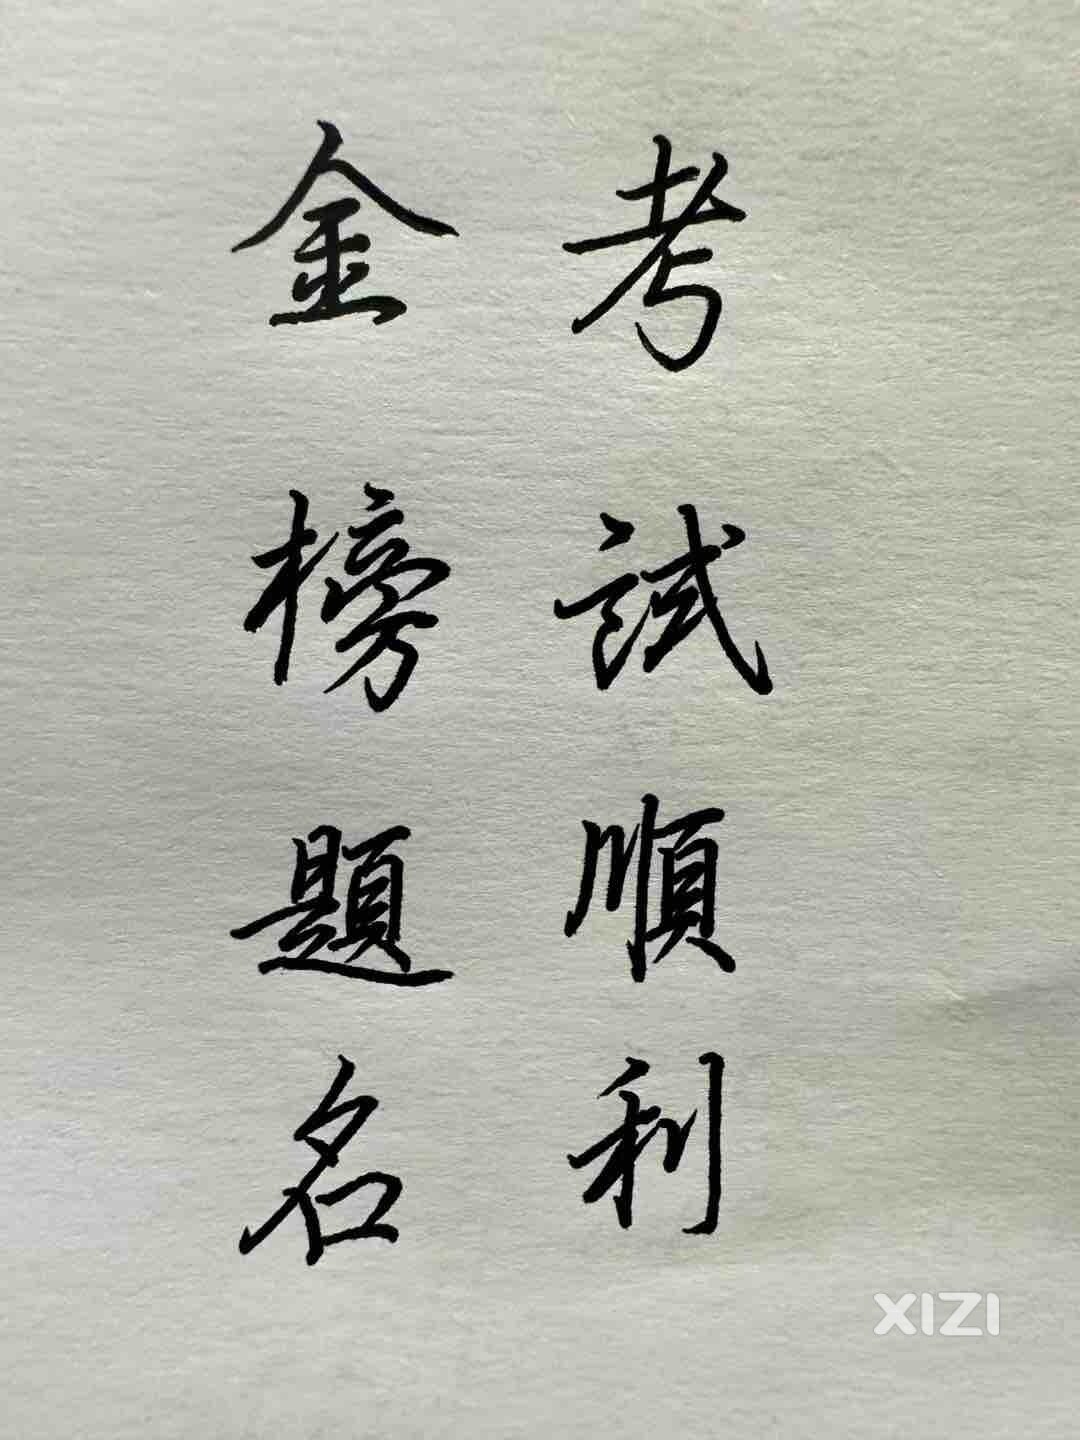 考試順利
金榜題名
XIZI